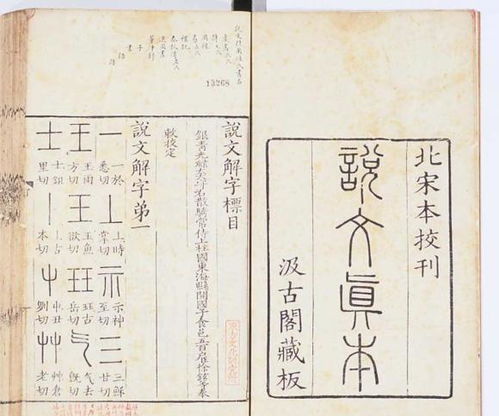 北宋本挍刊
說文眞本
汲古閣藏板
13268
說文解字標目
銀青光祿大夫守右散騎常侍上柱國東海縣開國子食邑五百戶徐鉉等奉
敕挍定
說文解字弟一
一 一於悉切 丄 丄時掌切 示 示神至切 三 三穌甘切
王 王雨方切 玉 玉魚欲切 玨 玨古岳切 气 气去旣切
士 士鉏里切 丨 丨古本切 屮 屮丑切 艸 艸倉老切